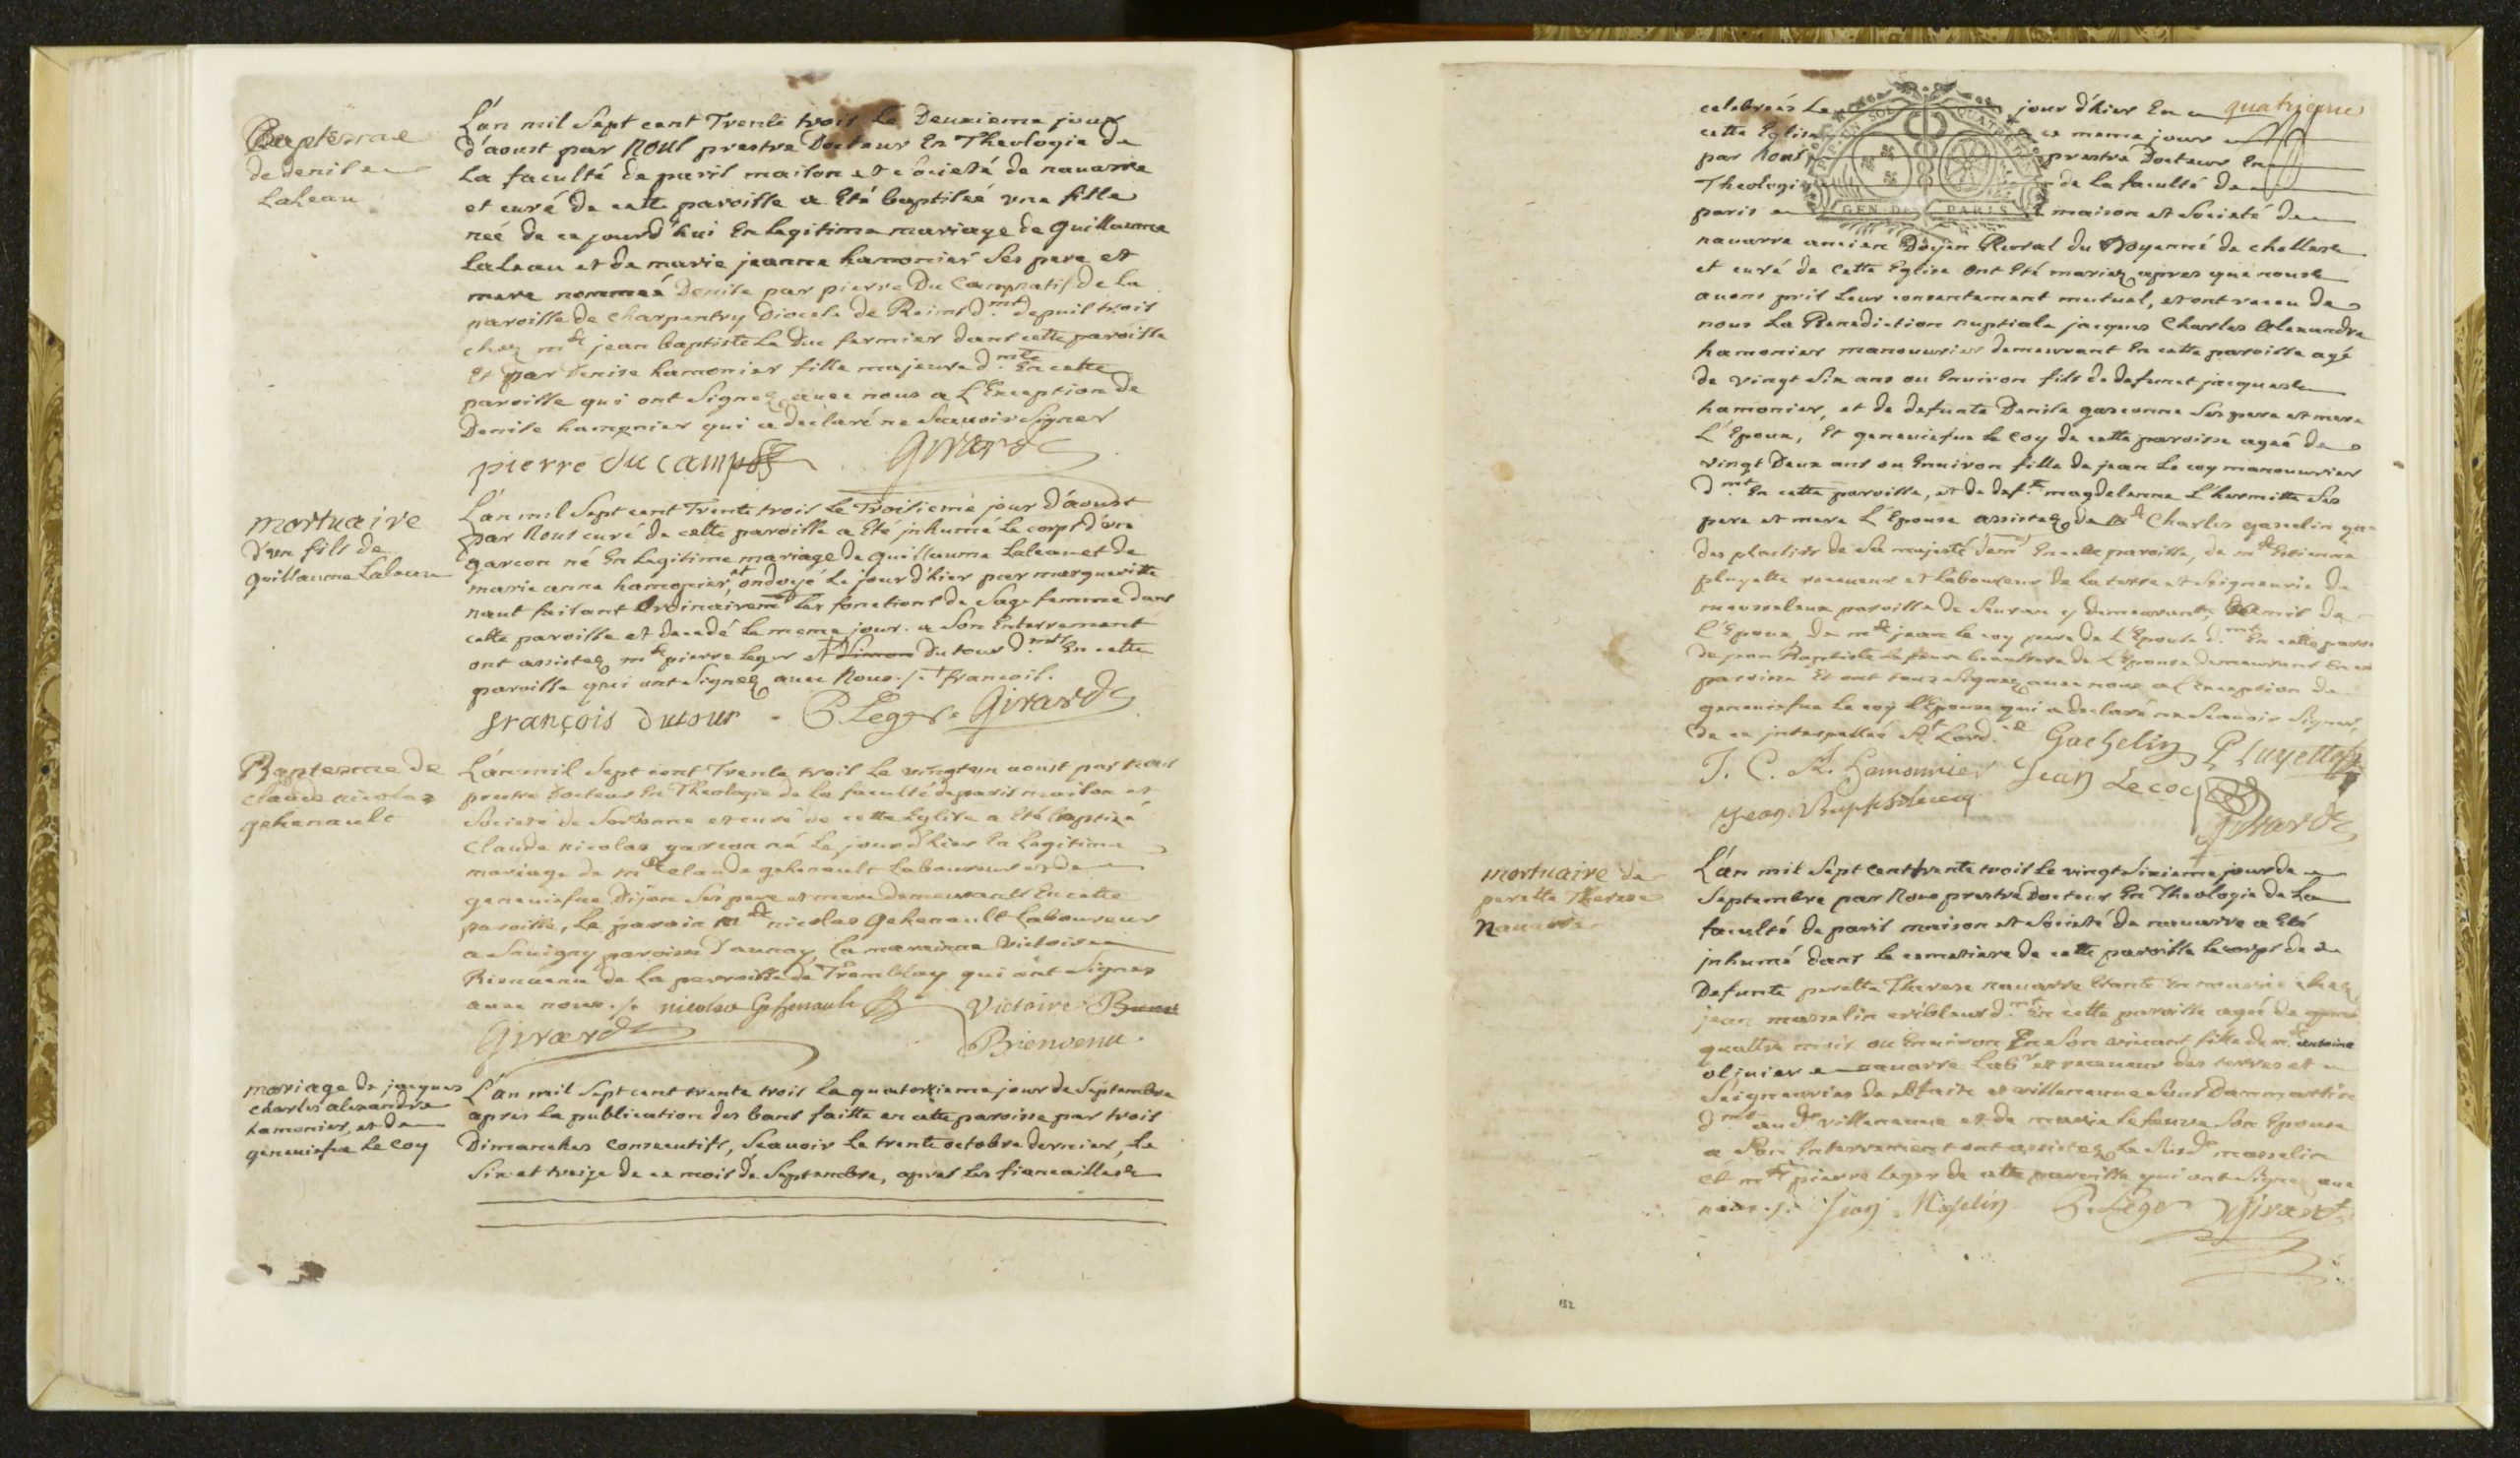 Bapteme
de denise
Laleau
L'an mil Sept cent Trente trois le Deuxieme jour
d'aoust par nous prestre Docteur En Theologie de
La faculté de paris maison et societé de nauarre
et curé de cette paroisse a Eté baptiseé une fille
neé de ce jourd'hui En legitime mariage de Guillaume
Laleau et de marie jeanne hamonier Ses pere et
mere nommeé Denise par pierre Du Camp natif de la
paroisse de Charpentry Diocese de Reims d.mt depuis trois
chez m.e jean baptiste Le Duc fermier dans cette paroisse
Et par Denise hamonier fille majeure d.mte En cette
paroisse qui ont Signez auec nous a L'Exception de
Denise hamonier qui a declaré ne Scauoir Signer
pierre du camp Girard
mortuaire
d'un fils de
guillaume Laleau
L'an mil Sept cent Trente trois Le Troisieme jour D'aoust
par Nous curé de cette paroisse a Eté inhumé Le corps d'un
garcon né En Legitime mariage de guillaume Laleau et de
marie anne hamonier, et ondoyé Le jour d'hier par marguerite
naut faisant Ordinairemt les fonctions de Sage femme dans
cette paroisse et decedé Le meme jour. a Son Enterrement
ont assistez m.e pierre leger et + Simon Dutour d.mts En cette
paroisse qui ont Signez auec Nous ./. + francois.
françois dutour . P. Leger . Girard
Baptesme de
claude nicolas
gehenault
L'an mil Sept cent Trente trois Le vingt un aoust par nous
prestre Docteur En Theologie de la faculté de paris maison et
Societé de Sorbonne et curé de cette Eglise a Eté baptisé
Claude nicolas garcon né Le jour d'hier En Legitime
mariage de m.e claude gehenault Laboureur et de
geneuiefue Dijon Ses pere et mere demeurants En cette
paroisse, Le parain m.e nicolas Gehenault Laboureur
a Sauigny paroisse d'aunay, La maraine Victoire
Bienuenu de la parroisse de Tremblay qui ont Signez
auec nous ./. nicolas Gehenault Victoire
Girard Bienvenu .
mariage de jacques
charles alexandre
hamonier, et de
geneuiefue Le coy
L'an mil Sept cent trente trois Le quatorzieme jour de Septembre
apres La publication des bans faitte en cette paroisse par trois
Dimanches consecutifs, Scauoir Le trente octobre dernier, Le
Six et treize de ce mois de Septembre, apres les fiancailles
celebreés Le jour d'hier En quatrieme
cette Eglise ce meme jour
par Nous prestre Docteur En
Theologie de la faculté de
paris maison et Societé de
GEN. DE PARIS
nauarre ancien Doyen Rural du Doyenné de chelles
et curé de Cette Eglise ont Eté mariez apres que nous
auons pris Leur consentement mutuel, et ont receu de
nous La Benediction nuptiale jacques Charles Alexandre
hamonier manouurier demeurant En cette paroisse agé
de vingt Six ans ou Enuiron fils de defunct jacques
hamonier, et de defunte Denise gasconne Ses pere et mere
L'Epoux, Et geneuiefue Le coy de cette paroisse ageé de
vingt Deux ans ou Enuiron fille de jean Le coy manouurier
d.mt En cette paroisse, et de def.te magdelenne L'hermitte Ses
pere et mere L'Epouse assistez de Charles gaschelin
des plaisirs de Sa majesté demt En cette paroisse, de m.e Estienne
pluyette receueur et Laboureur de la terre et Seigneurie de
paroisse de Seuran y demeurant, amis de
L'Epoux, de m.e jean Le coy pere de L'Epouse d.mt En cette paroisse
de jean Baptiste beaufrere de L'Epouse demeurant En ce
paroisse Et ont tous Signez auec nous a L'exception de
geneuiefue Le coy L'Epouse qui a declaré ne Scauoir Signer,
de ce interpelleé
Gachelin Pluyette
J. C. A. Hamonnier Jean Lecoq
Jean Girard
mortuaire de
perette Therese
Nauarre
L'an mil Sept cent trente trois Le vingt Sixieme jour de
Septembre par Nous prestre Docteur En Theologie de La
faculté de paris maison et Societé de nauarre a Eté
inhumé dans Le cemetiere de cette paroisse Le corps de
Defunte perette Therese nauarre Etante En nourrice chez
jean masselin cribleur d.mt En cette paroisse ageé de
quattre mois ou Enuiron En Son viuant fille de m.e antoine
oliuier nauarre Lab.r et receueur des terres et
Seigneuries de et villeneuue Sous Dammartin
d.mt aud. villeneuue et de marie Lefeuure Son Epouse
a Son Enterrement ont assistez Le Susd. masselin
et m.e pierre Leger de cette paroisse qui ont Signez auec
nous ./. Jean Maselin P. Leger Girard